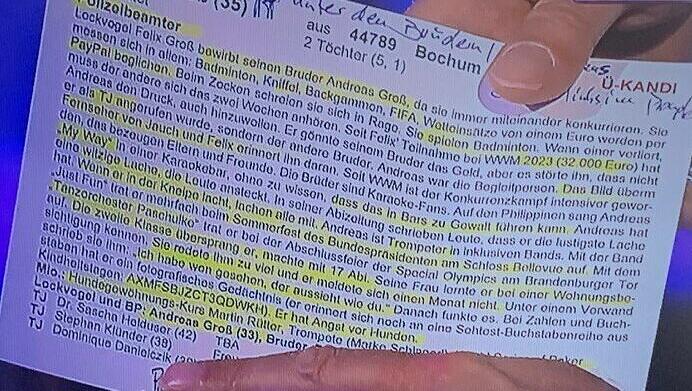 (35)
Polizeibeamter
unter den Brüdern!
aus 44789 Bochum
2 Töchter (5, 1)
Ü-KANDI
Lockvogel Felix Groß bewirbt seinen Bruder Andreas Groß, da sie immer miteinander konkurrieren. Sie
messen sich in allem: Badminton, Kniffel, Backgammon, FIFA. Wetteinsätze von einem Euro worden per
PayPal beglichen. Beim Zocken schreien sie sich in Rage. Sie spielen Badminton. Wenn einer verliert,
muss der andere sich das zwei Wochen anhören. Seit Felix' Teilnahme bei WWM 2023 (32 000 Euro) hat
Andreas den Druck, auch hinzuwollen. Er gönnte seinem Bruder das Geld, aber es störte ihn, dass nicht
er als TJ angerufen wurde, sondern der andere Bruder. Andreas war die Begleitperson. Das Bild überm
Fernseher von Jauch und Felix erinnert ihn daran. Seit WWM ist der Konkurrenzkampf intensiver gewor-
den, das bezeugen Eltern und Freunde. Die Brüder sind Karaoke-Fans. Auf den Philippinen sang Andreas
„My Way" in einer Karaokebar, ohne zu wissen, dass das in Bars zu Gewalt führen kann. Andreas hat
eine witzige Lache, die Leute ansteckt. In seiner Abizeitung schrieben Leute, dass er die lustigste Lache
hat. Wenn er in der Kneipe lacht, lachen alle mit. Andreas ist Trompeter in inklusiven Bands. Mit der Band
„Just Fun" trat er mehrfach beim Sommerfest des Bundespräsidenten am Schloss Bellevue auf. Mit dem
„Tanzorchester Paschulke" trat er bei der Abschlussfeier der Special Olympics am Brandenburger Tor
auf. Die zweite Klasse übersprang er, machte mit 17 Abi. Seine Frau lernte er bei einer Wohnungsbe-
sichtigung kennen. Sie redete ihm zu viel und er meldete sich einen Monat nicht. Unter einem Vorwand
schrieb sie ihm: „Ich habe wen gesehen, der aussieht wie du." Danach funkte es. Bei Zahlen und Buch-
staben hat er ein fotografisches Gedächtnis (er erinnert sich noch an eine Sehtest-Buchstabenreihe aus
Kindheitstagen: AXMFSBJZCT3QDWKH). Er hat Angst vor Hunden.
Mio.: Hundegewöhnungs-Kurs Martin Rütter, Trompete
Lockvogel und BP: Andreas Groß (33), Bruder,
TJ Dr. Sascha Helduser (42) TBA
TJ Stephan Klünder (38)
TJ Dominique Danielczik